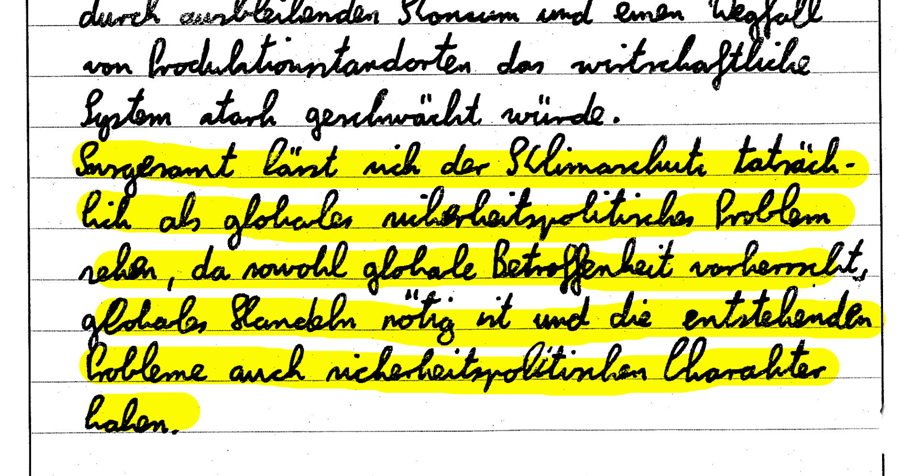 durch ausbleibenden Konsum und einen Wegfall
von Produktionsstandorten das wirtschaftliche
System stark geschwächt würde.
Insgesamt lässt sich der Klimaschutz tatsäch-
lich als globales sicherheitspolitisches Problem
sehen, da sowohl globale Betroffenheit vorherrscht,
globales Handeln nötig ist und die entstehenden
Probleme auch sicherheitspolitischen Charakter
haben.